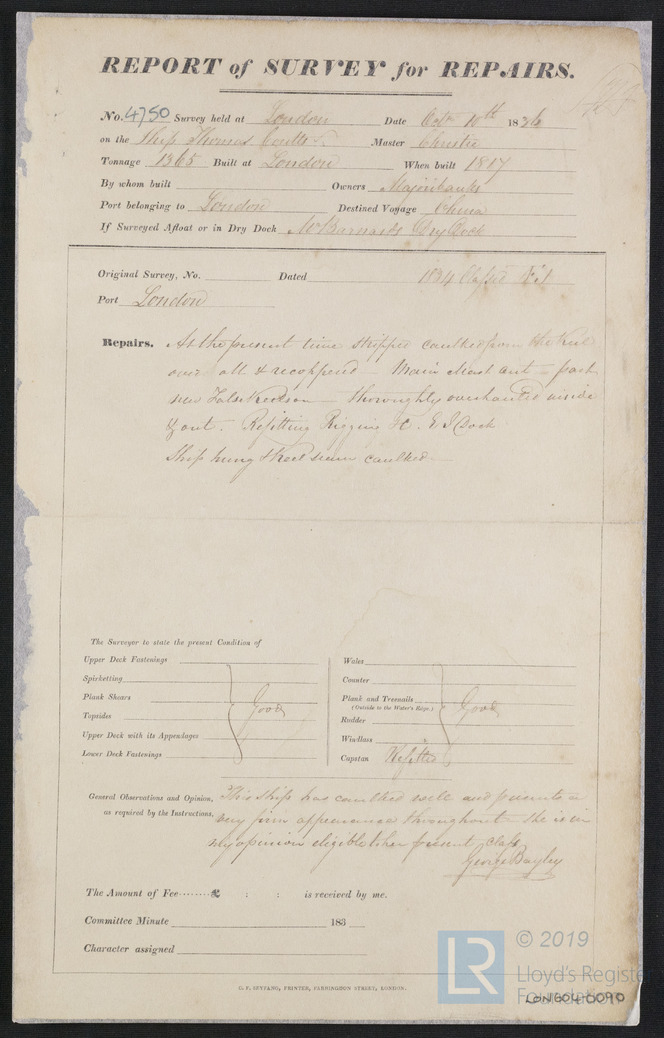 REPORT of SURVEY for REPAIRS.
No. 4750 Survey held at London Date Octr 10th 1836
on the Ship Thomas Coutts Master Christie
Tonnage 1365 Built at London When built 1817
By whom built Owners Majoribanks
Port belonging to London Destined Voyage China
If Surveyed Afloat or in Dry Dock Mr Barnards Dry Dock
Original Survey, No. Dated 1834 Classed
Port London
Repairs. At the present time stripped caulked from the Keel
over all & recoppered - Main Mast out - part
new False Keelson - thoroughly overhauled inside
& out. Refitting Rigging &c. E I Dock
Ship hung & Keel seam caulked
The Surveyor to state the present Condition of
Upper Deck Fastenings
Spirketting
Plank Shears
Topsides
Upper Deck with its Appendages
Lower Deck Fastenings
Good
Wales
Counter
Plank and Treenails
(Outside to the Water's Edge)
Rudder
Windlass
Good
Capstan Refitted
General Observations and Opinion, This Ship has caulked well and presents a
as required by the Instructions, very firm appearance throughout - She is in
my opinion eligible to her present class
George Bayley
The Amount of Fee ........ £ : : is received by me.
Committee Minute 183
Character assigned
G. F. SEYFANG, PRINTER, FARRINGDON STREET, LONDON.
LR © 2019
Lloyd's Register
Foundation
LON604-0090